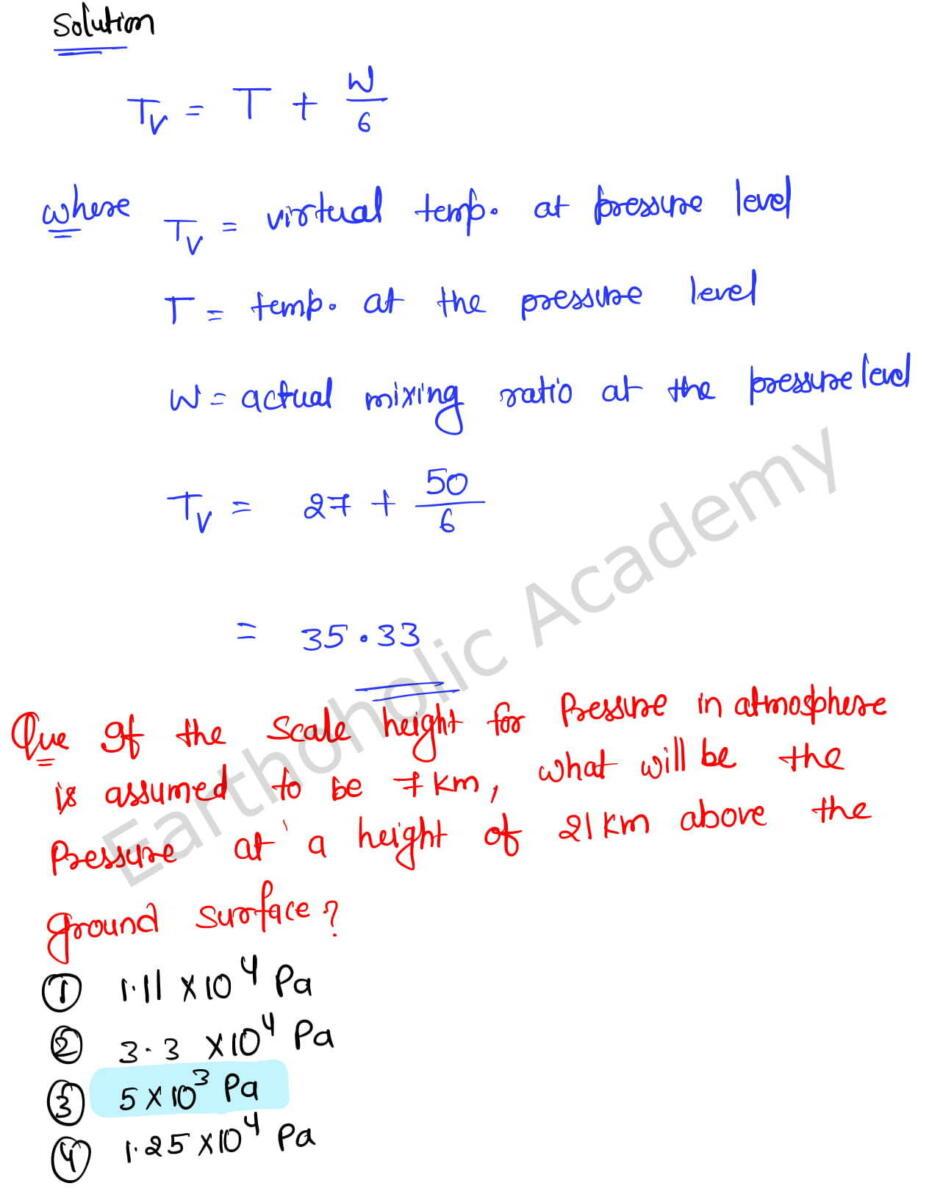 Solution
Tv = T + W/6
where Tv = virtual temp. at pressure level
T = temp. at the pressure level
W = actual mixing ratio at the pressure level
Tv = 27 + 50/6
= 35.33
Que If the Scale height for Pressure in atmosphere
is assumed to be 7 Km, what will be the
Pressure at a height of 21 Km above the
ground surface?
① 1.11 × 10⁴ Pa
② 3.3 × 10⁴ Pa
③ 5 × 10³ Pa
④ 1.25 × 10⁴ Pa
Earthoholic Academy